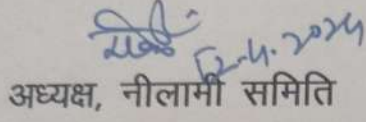 12.4.2024
अध्यक्ष, नीलामी समिति